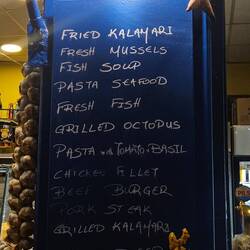 FRIED KALAMARI
FRESH MUSSELS
FISH SOUP
PASTA SEAFOOD
FRESH FISH
GRILLED OCTOPUS
PASTA WITH TOMATO-BASIL
CHICKEN FILLET
BEEF BURGER
PORK STEAK
GRILLED KALAMARI